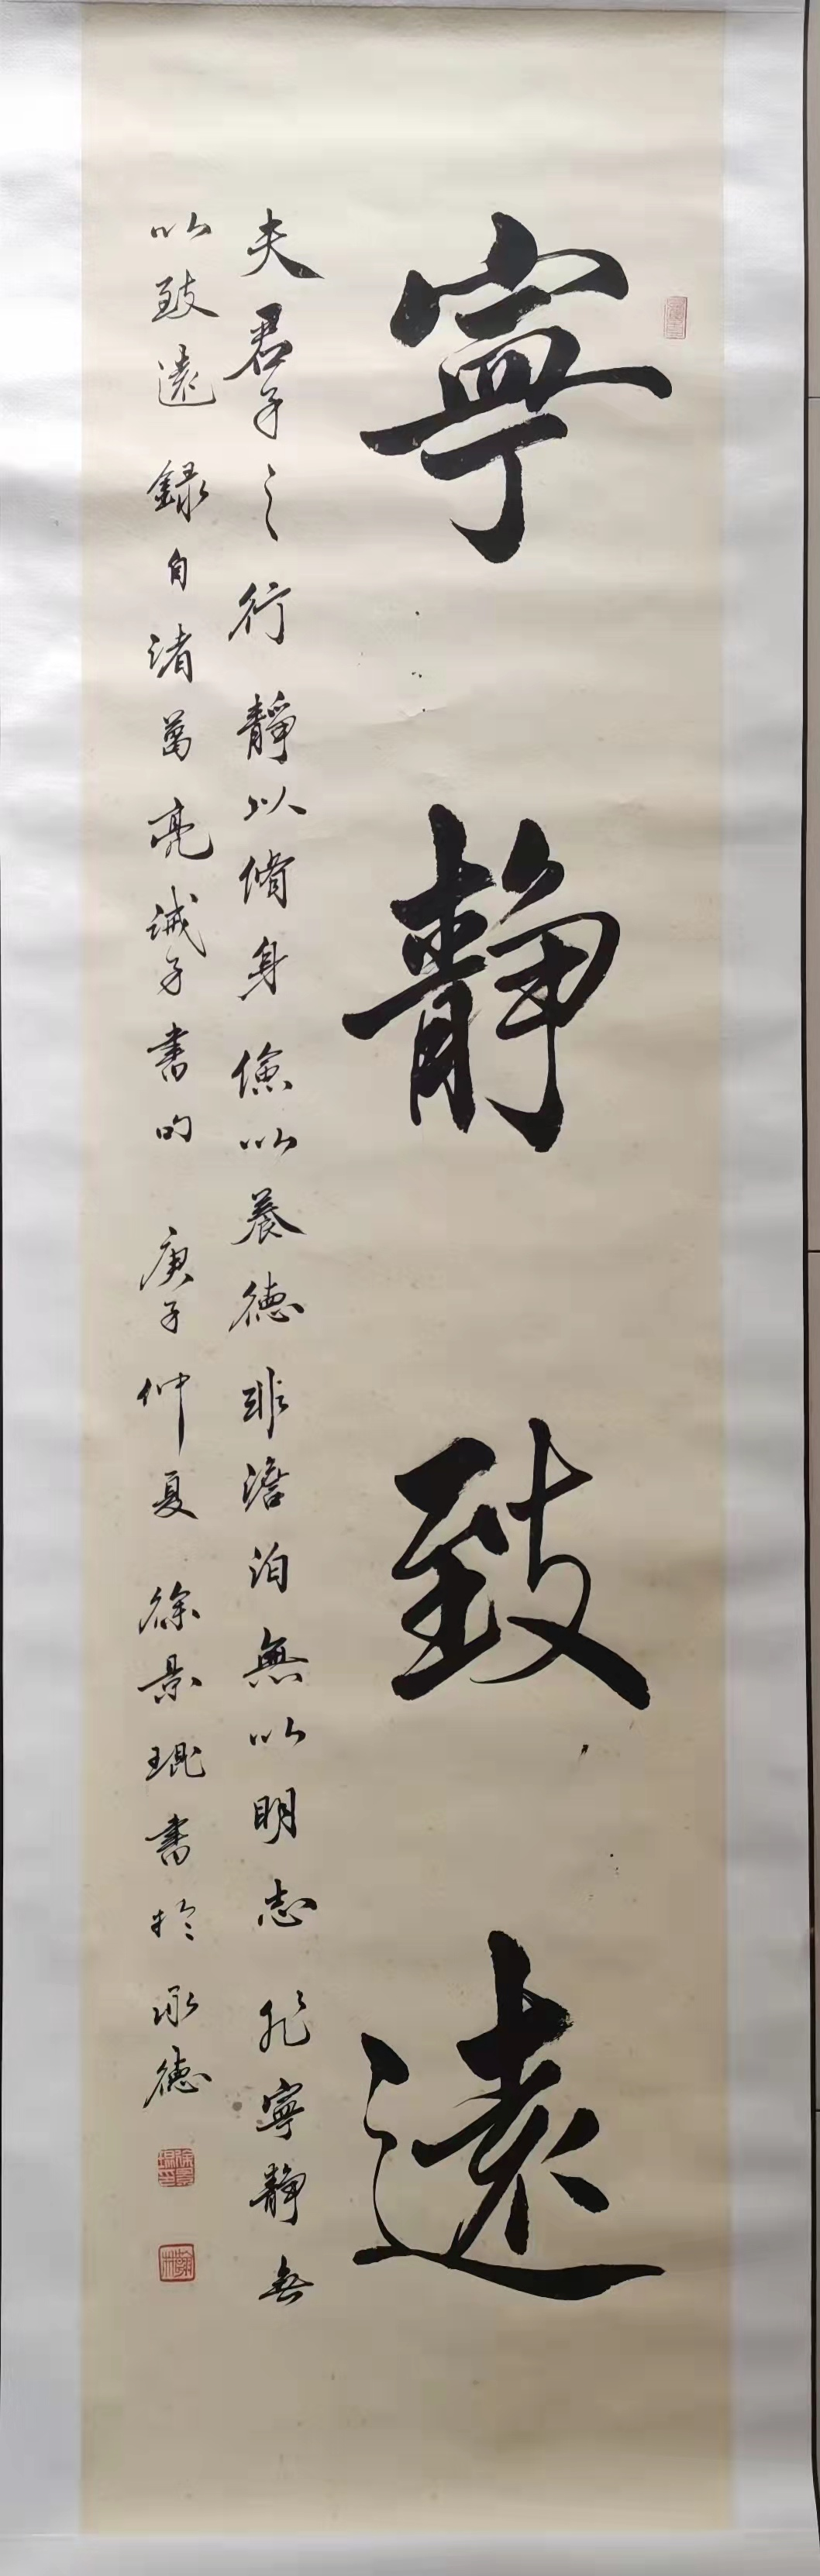 寧静致遠
夫君子之行靜以脩身儉以養德非澹泊無以明志非寧静無
以致遠 録自諸葛亮誡子書句 庚子仲夏 徐景琨書於承德